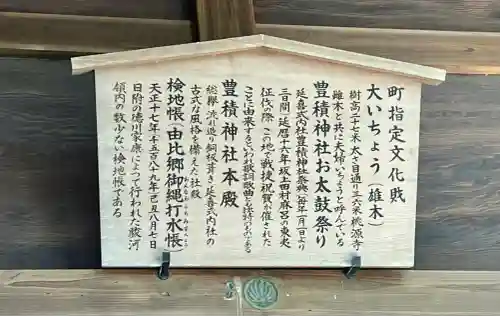 町指定文化財
大いちょう（雄木）
樹高二十七米 太さ目通り三・六米 桃源寺
雌木と共に夫婦いちょうと呼んでいる
豊積神社お太鼓祭り
延喜式内社豊積神社祭典（毎年一月一日より
三日間）延暦十六年坂上田村麻呂の東夷
征伐の際 この地で戦捷祝賀が催された
ことに由来するといわれ歌詞歌曲とも
豊積神社本殿
総欅 流れ造り銅板葺き 延喜式内社の
古式な風格を備えた社殿
検地帳「由比郷御縄打水帳」
おなわうちみずちょう
天正十七年（一五八九年）己丑八月七日
日附の徳川家康によって行われた駿河
領内の数少ない検地帳である